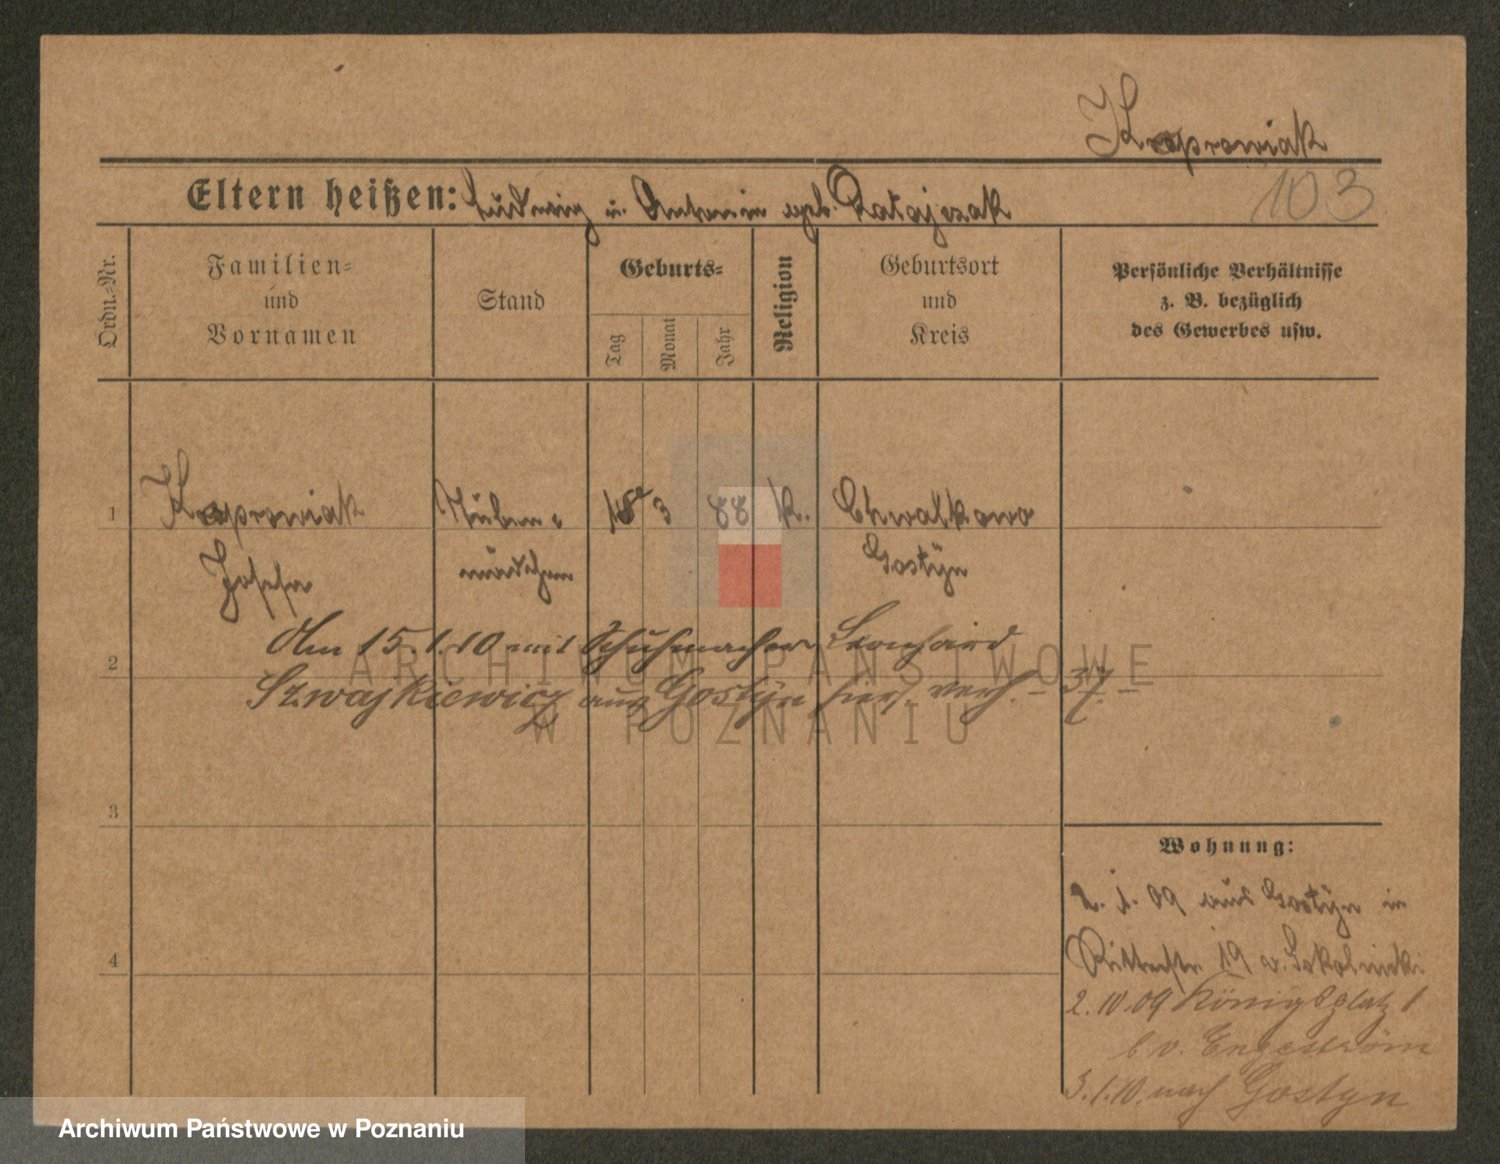 Koprowiak
Eltern heißen: Ludwig u. Antonie geb. Ratajczak
103
Ordn.-Nr.
Familien=
und
Vornamen
Stand
Geburts=
Tag
Monat
Jahr
Religion
Geburtsort
und
Kreis
Persönliche Verhältnisse
z. B. bezüglich
des Gewerbes usw.
1 Koprowiak Stuben= 18 3 88 k. Chwalkowo
Josefa mädchen Gostyn
Am 15.1.10 mit Schuhmacher Leonhard
2
Szwajkiewicz aus Gostyn hier verh. - 37. -
3
4
Wohnung:
2. 1. 09 aus Gostyn in
Ritterstr. 19 v. Sokolnicki
2.10.09 Königsplatz 1
b v. Engeström
3.1.10. nach Gostyn
ARCHIWUM PAŃSTWOWE
W POZNANIU
Archiwum Państwowe w Poznaniu